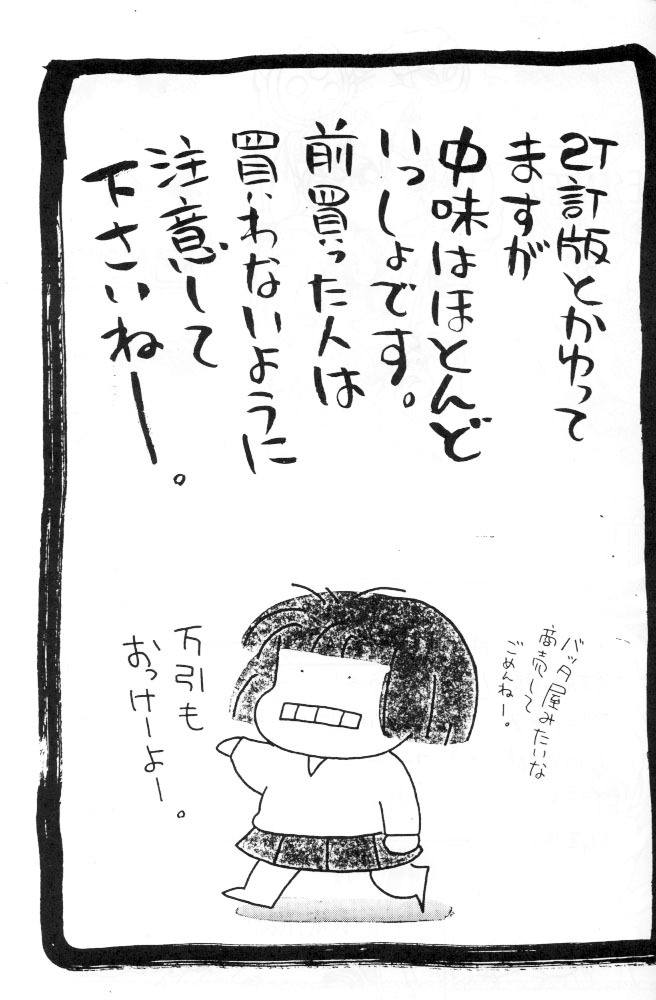 2訂版とかゆって
ますが
中味はほとんど
いっしょです。
前買った人は
買わないように
注意して
下さいねー。
バッタ屋みたいな
商売して
ごめんねー。
万引も
おっけーよー。